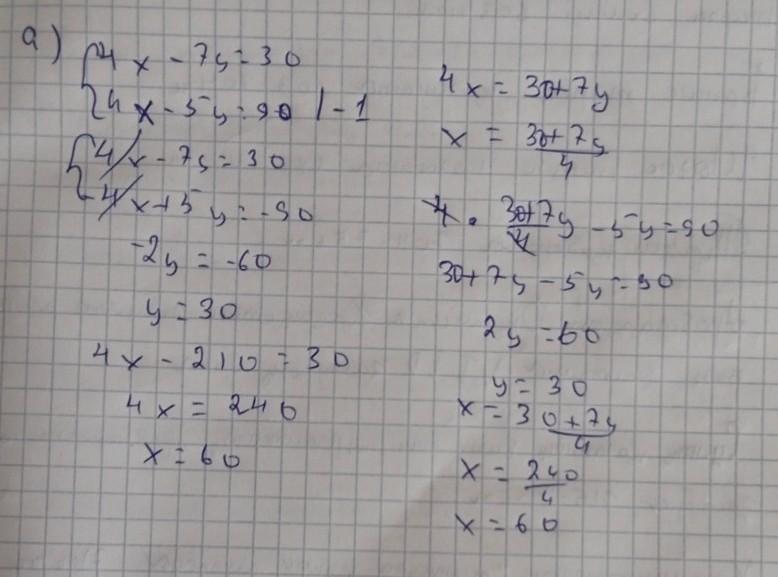 a)
4x - 7y = 30
4x - 5y = 90 | -1
4x - 7y = 30
-4x + 5y = -90
-2y = -60
y = 30
4x - 210 = 30
4x = 240
x = 60
4x = 30+7y
x = 30+7y / 4
4 · 30+7y / 4 - 5y = 90
30+7y - 5y = 90
2y = 60
y = 30
x = 30+7y / 4
x = 240 / 4
x = 60